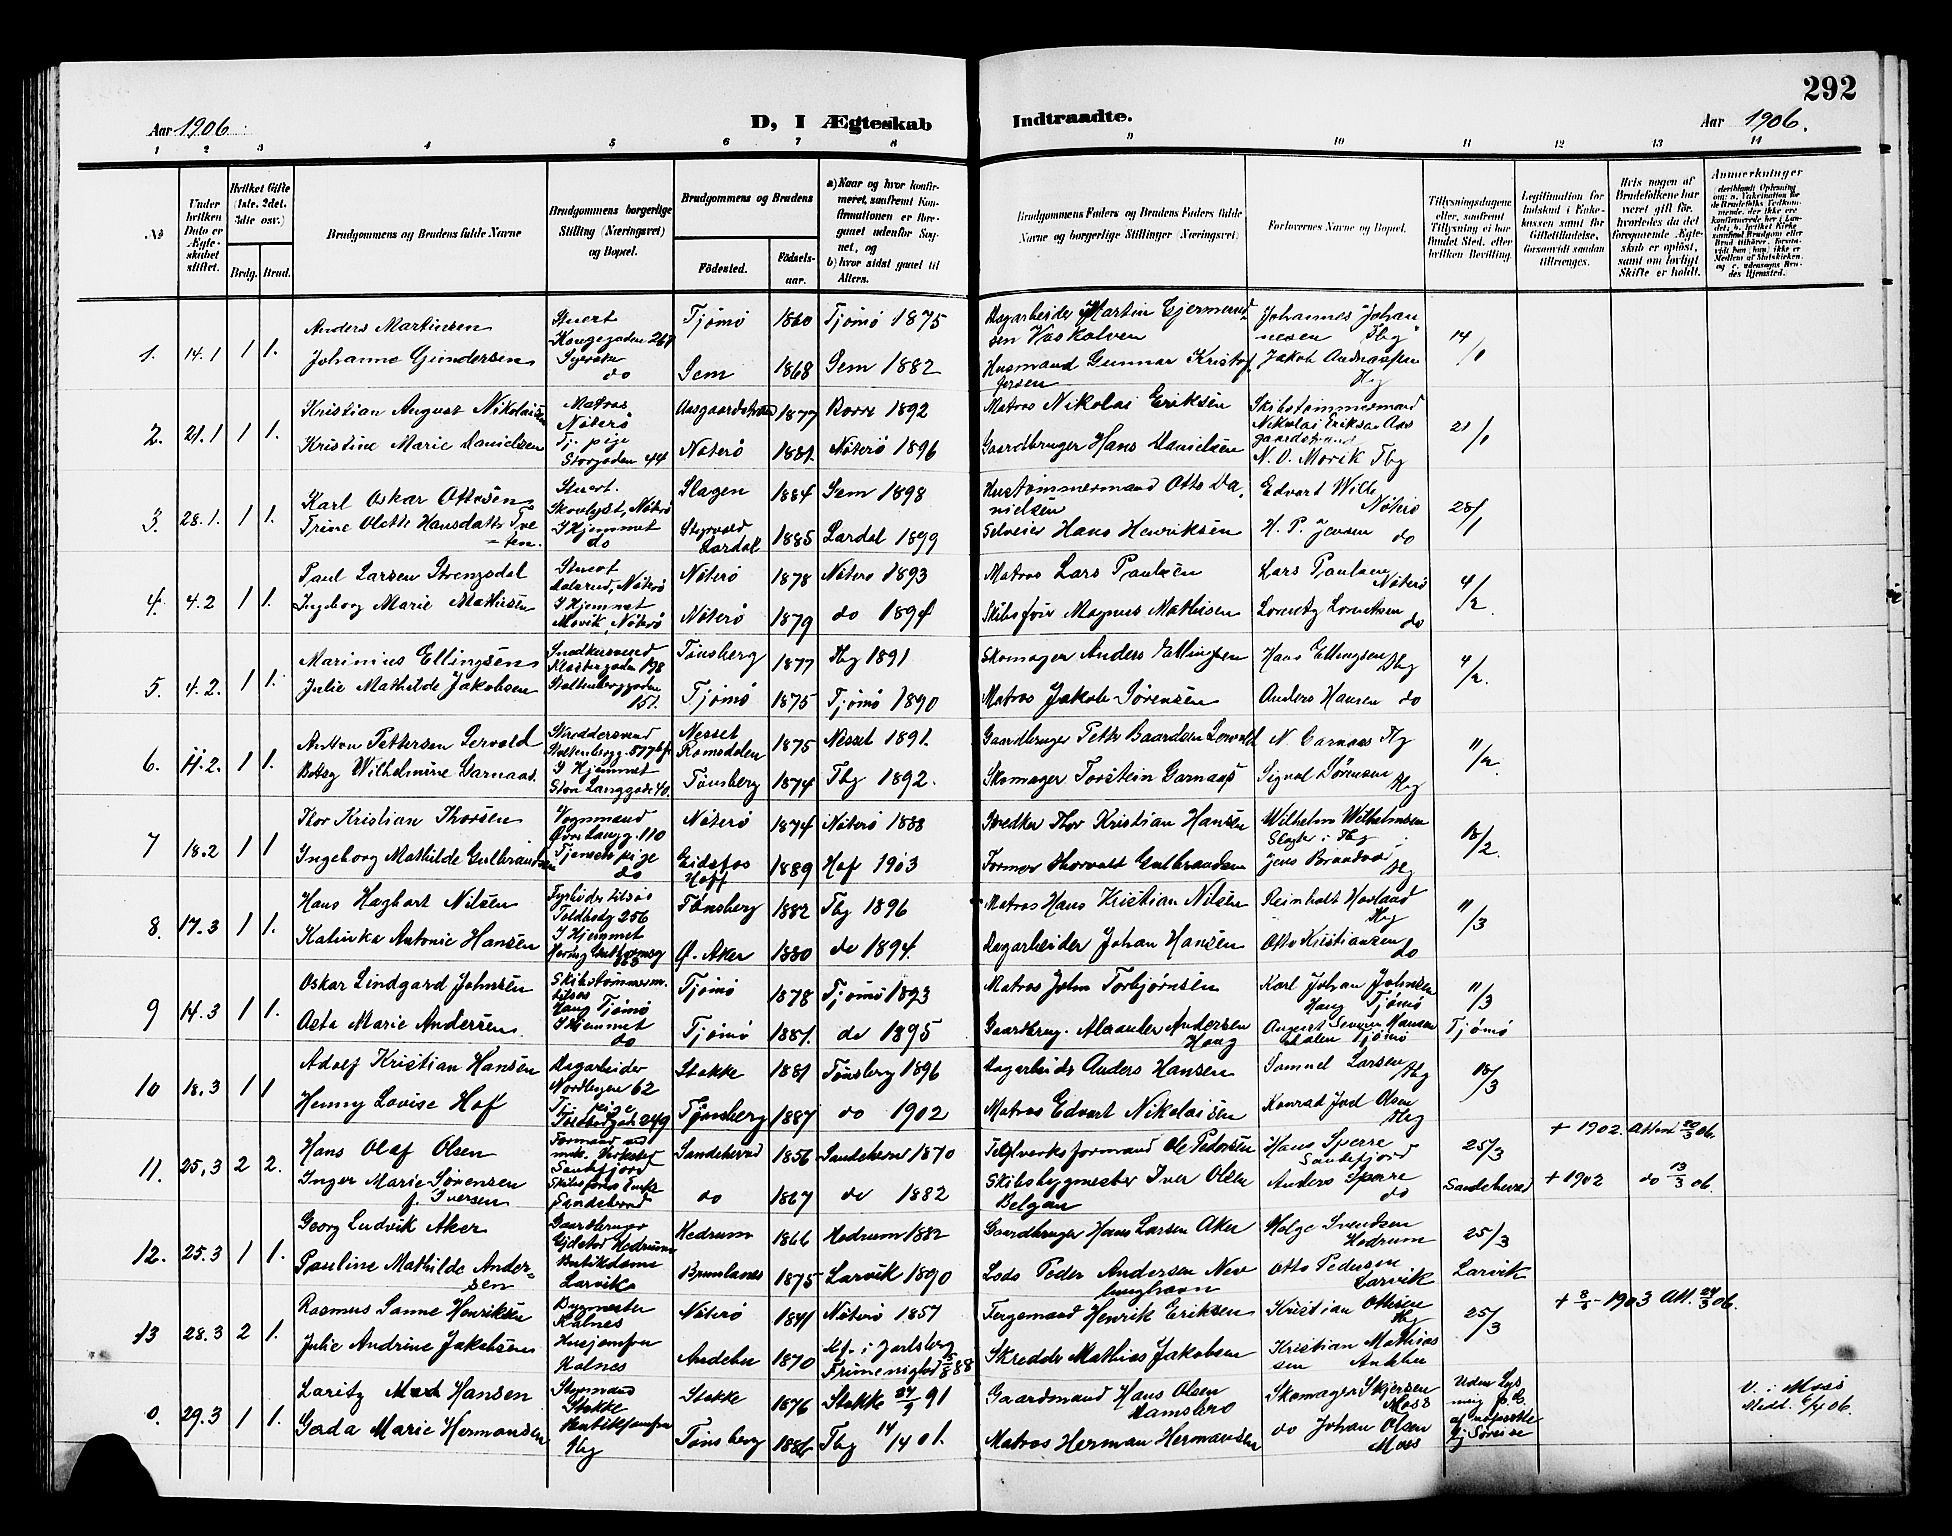 292
Aar 1906.
D, I Ægteskab
Indtraadte.
Aar 1906.
1 2 3 4 5 6 7 8 9 10 11 12 13 14
No
Under hvilken Dato er Ægteskabet stiftet.
Hvilket Gifte (1ste. 2det. 3die osv.)
Brdg. Brud.
Brudgommens og Brudens fulde Navne
Brudgommens borgerlige Stilling (Næringsvei) og Bopæl.
Brudgommens og Brudens
Födested.
Födselsaar.
a) Naar og hvor konfirmeret, saafremt Konfirmationen er foregaaet udenfor Sognet, og
b) hvor sidst gaaet til Alters.
Brudgommens Faders og Brudens Faders fulde Navne og borgerlige Stillinger (Næringsvei)
Forlovernes Navne og Bopæl.
Tillysningsdagene eller, saafremt Tillysning ei har fundet Sted, efter hvilken Bevilling.
Legitimation for Indskud i Enkekassen samt for Giftetilladelse, forsaavidt saadan tiltrænges.
Hvis nogen af Brudefolkene har været gift för, hvorledes da det foregaaende Ægteskab er oplöst, samt om lovligt Skifte er holdt.
Anmerkninger
1. 14.1 1 1.
Anders Martinsen
Stuert
Kongegaden 267
Tjømø 1860 Tjømø 1875
Dagarbeider Martin Gjermundsen Vaskalven
Johannes Johannesen Tbg
14/1
Johanne Gundersen
Syerske
do
Sem 1868 Sem 1882
Husmand Gunnar Kristofersen
Jakob Andreassen
Tbg
2. 21.1 1 1.
Kristian August Nikolaisen
Matros
Nøterø
Aasgaardstrand 1877 Borre 1892
Matros Nikolai Eriksen
Skibstømmermand
Nikolai Eriksen Aasgaardstrand
21/1
Kristine Marie Danielsen
Tj. pige
Storgaden 44
Nøterø 1881. Nøterø 1896
Gaardbruger Hans Danielsen
N. O. Morik Tbg
3. 28.1. 1 1.
Karl Oskar Ottesen
Stuert.
Skovlyst, Nøterø
Slagen 1884 Sem 1898
Hustømmermand Otto Danielsen
Edvart Wilh
Nøterø
28/1
Trine Olette Hansdatter Tveten.
I Hjemmet
do
Styrvold
Lardal 1885 Lardal 1899
Selveier Hans Henriksen
H. P. Jensen do
4. 4.2 1 1.
Paul Larsen Strengsdal
Stuert
Nøterø
Nøterø 1878 Nøterø 1893
Matros Lars Paulsen
Lars Paulsen
Nøterø
4/2.
Ingeborg Marie Mathisen
I Hjemmet
Movik, Nøterø
Nøterø 1879 do 1894
Skibsfører Magnus Mathisen
Lorentz Lorentsen
do
5. 4.2. 1 1.
Marinius Ellingsen
Snedkersvend
Klostergaden 198
Tønsberg 1877 Tbg 1891
Skomager Anders Ellingsen
Hans Ellingsen Tbg
4/2.
Julie Mathilde Jakobsen
Stoltenberggaden
151.
Tjømø 1875 Tjømø 1890
Matros Jakob Sørensen
Anders Hansen do
6. 11.2. 1 1.
Anton Pettersen Lervold
Skreddersvend
Stoltenbergg. 577
Nesset
Romsdalen 1875 Nesset 1891.
Gaardbruger Petter Baardsen Lervold
N. Garnaas Tbg
11/2.
Betsy Wilhelmine Garnaas.
I Hjemmet
Store Langgade 40.
Tønsberg 1874 Tbg 1892.
Skomager Torstein Garnaas
Signal Sørensen
Tbg
7 18.2 1 1
Thor Kristian Thorsen
Vognmand
Øvre Langg. 110
Nøterø 1874 Nøterø 1888
Thor Kristian Hansen
Wilhelm Wilhelmsen
Slagter i Tbg
18/2
Ingeborg Mathilde Gulbrandsen
Tjenestepige
do
Eidsfos
Hoff 1889 Hof 1903
Former Thorvald Gulbrandsen
Jens Brandvold
Tbg
8. 17.3 1 1.
Hans Hagbart Nilsen
Fyrbøder tilsøs
Toldbodg 256
Tønsberg 1882 Tbg 1896
Matros Hans Kristian Nilsen
Reinholt Hovland
Tbg
11/3
Katinka Antonie Hansen
I Hjemmet
Ø. Aker 1880 do 1894.
Dagarbeider Johan Hansen
Otto Kristiansen
do
9 14.3 1 1.
Oskar Lindgard Johnsen
Skibstømmerm.
tilsøs
Haug Tjømø
Tjømø 1878 Tjømø 1893
Matros John Torbjørnsen
Karl Johan Johnsen
Haug Tjømø
11/3
Tjømø
Asta Marie Andersen
I Hjemmet
do
Tjømø 1881. do 1895
Gaardbrug. Andersen
Haug
August Severin Hansen
Tjømø
10 18.3 1 1
Adolf Kristian Hansen
Dagarbeider
Nordbyen 62
Stokke 1881 Tønsberg 1896
Dagarbeider Anders Hansen
Samuel Larsen Tbg
18/3
Henny Lovise Hof
Tj. pige
Toldbodgade 249
Tønsberg 1887 do 1902
Matros Edvart Nikolaisen
Konrad Olsen
Tbg
11. 25.3 2 2.
Hans Olaf Olsen
Formand ved
mek. Verksted
Sandefjord
Sandeherred 1856 Sandeherred 1870
Teglverksformand Ole Pedersen
Hans Sperre
Sandefjord
25/3
+ 1902. Attest 20/3 06.
Inger Marie Sørensen
f. Iversen
Skibsførers Enke
Sandeherred
do 1867 do 1882
Skibsbygmester Iver Olsen
Belgau
Anders Sperre
do
Sandeherred
+ 1902 do 13/3 06.
12. 25.3 1 1.
Georg Ludvik Aker
Gaardbruger
Gjelstad Hedrum
Hedrum 1866 Hedrum 1882
Gaardbruger Hans Larsen Aker
Helge Svendsen
Hedrum
25/3
Larvik
Pauline Mathilde Andersen
Butikdame
Larvik
Brunlanes 1875 Larvik 1890
Lods Peder Andersen Nevlunghavn
Otto Pedersen
Larvik
13 28.3 2 1.
Rasmus Sanne Henriksen
Bygmester
Kalnes
Nøterø 1841 Nøterø 1857
Fergemand Henrik Eriksen
Kristian Ottesen
Tbg
25/3
+ 8/5 - 1903 Att. 24/3 06.
Julie Andrine Jakobsen
Husjomfru
Kalnes
Andebu 1870 Mf. i Jarlsberg
Frimenighed 88
Skredder Mathias Jakobsen
Kristian Mathiassen Andebu
0. 29.3 1 1.
Laritz Hansen
Styrmand
Stokke
Stokke 1876 Stokke 27/9 91
Gaardmand Hans Olsen
Ramsbro
Skomager Skjersen
Moss
Uden Lysning
V. i Moss
Medd. 6/4 06.
Gerda Marie Hermansen
Butikjomfru
Tbg
Tønsberg 1886 Tbg 14/4 01.
Matros Herman Hermansen
do Johan Olsen
Moss